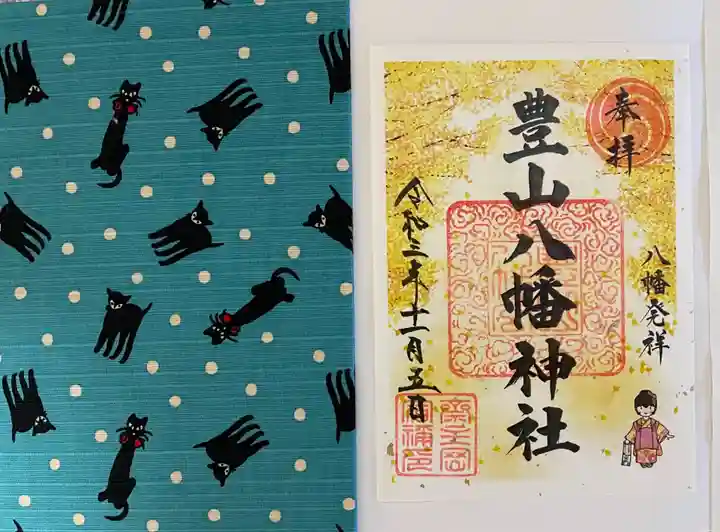 奉拝
八幡発祥
豊山八幡神社
令和三年十一月五日